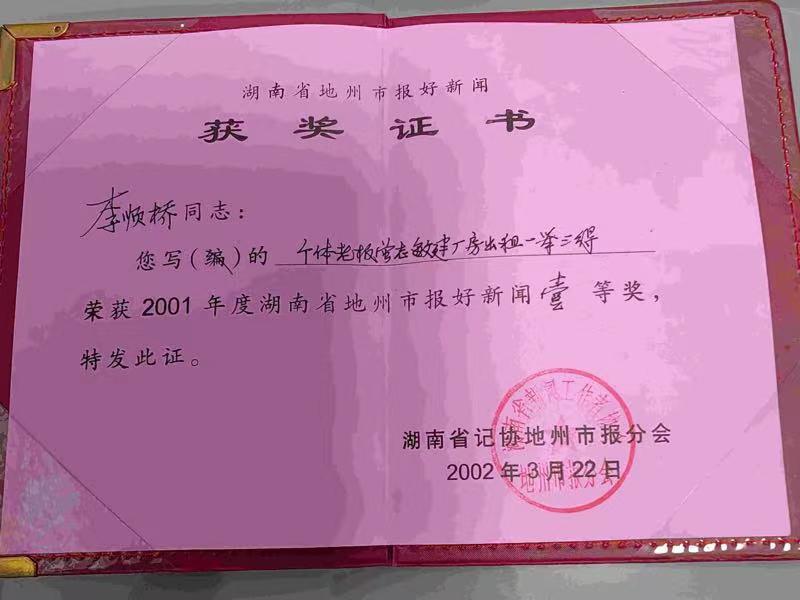 湖南省地州市报好新闻
获奖证书
李顺桥同志：
您写(编)的 个体老板曾志敏建厂房出租一举三得
荣获2001年度湖南省地州市报好新闻壹等奖，
特发此证。
湖南省记协地州市报分会
2002年3月22日
湖南省新闻工作者协
地州市报分会